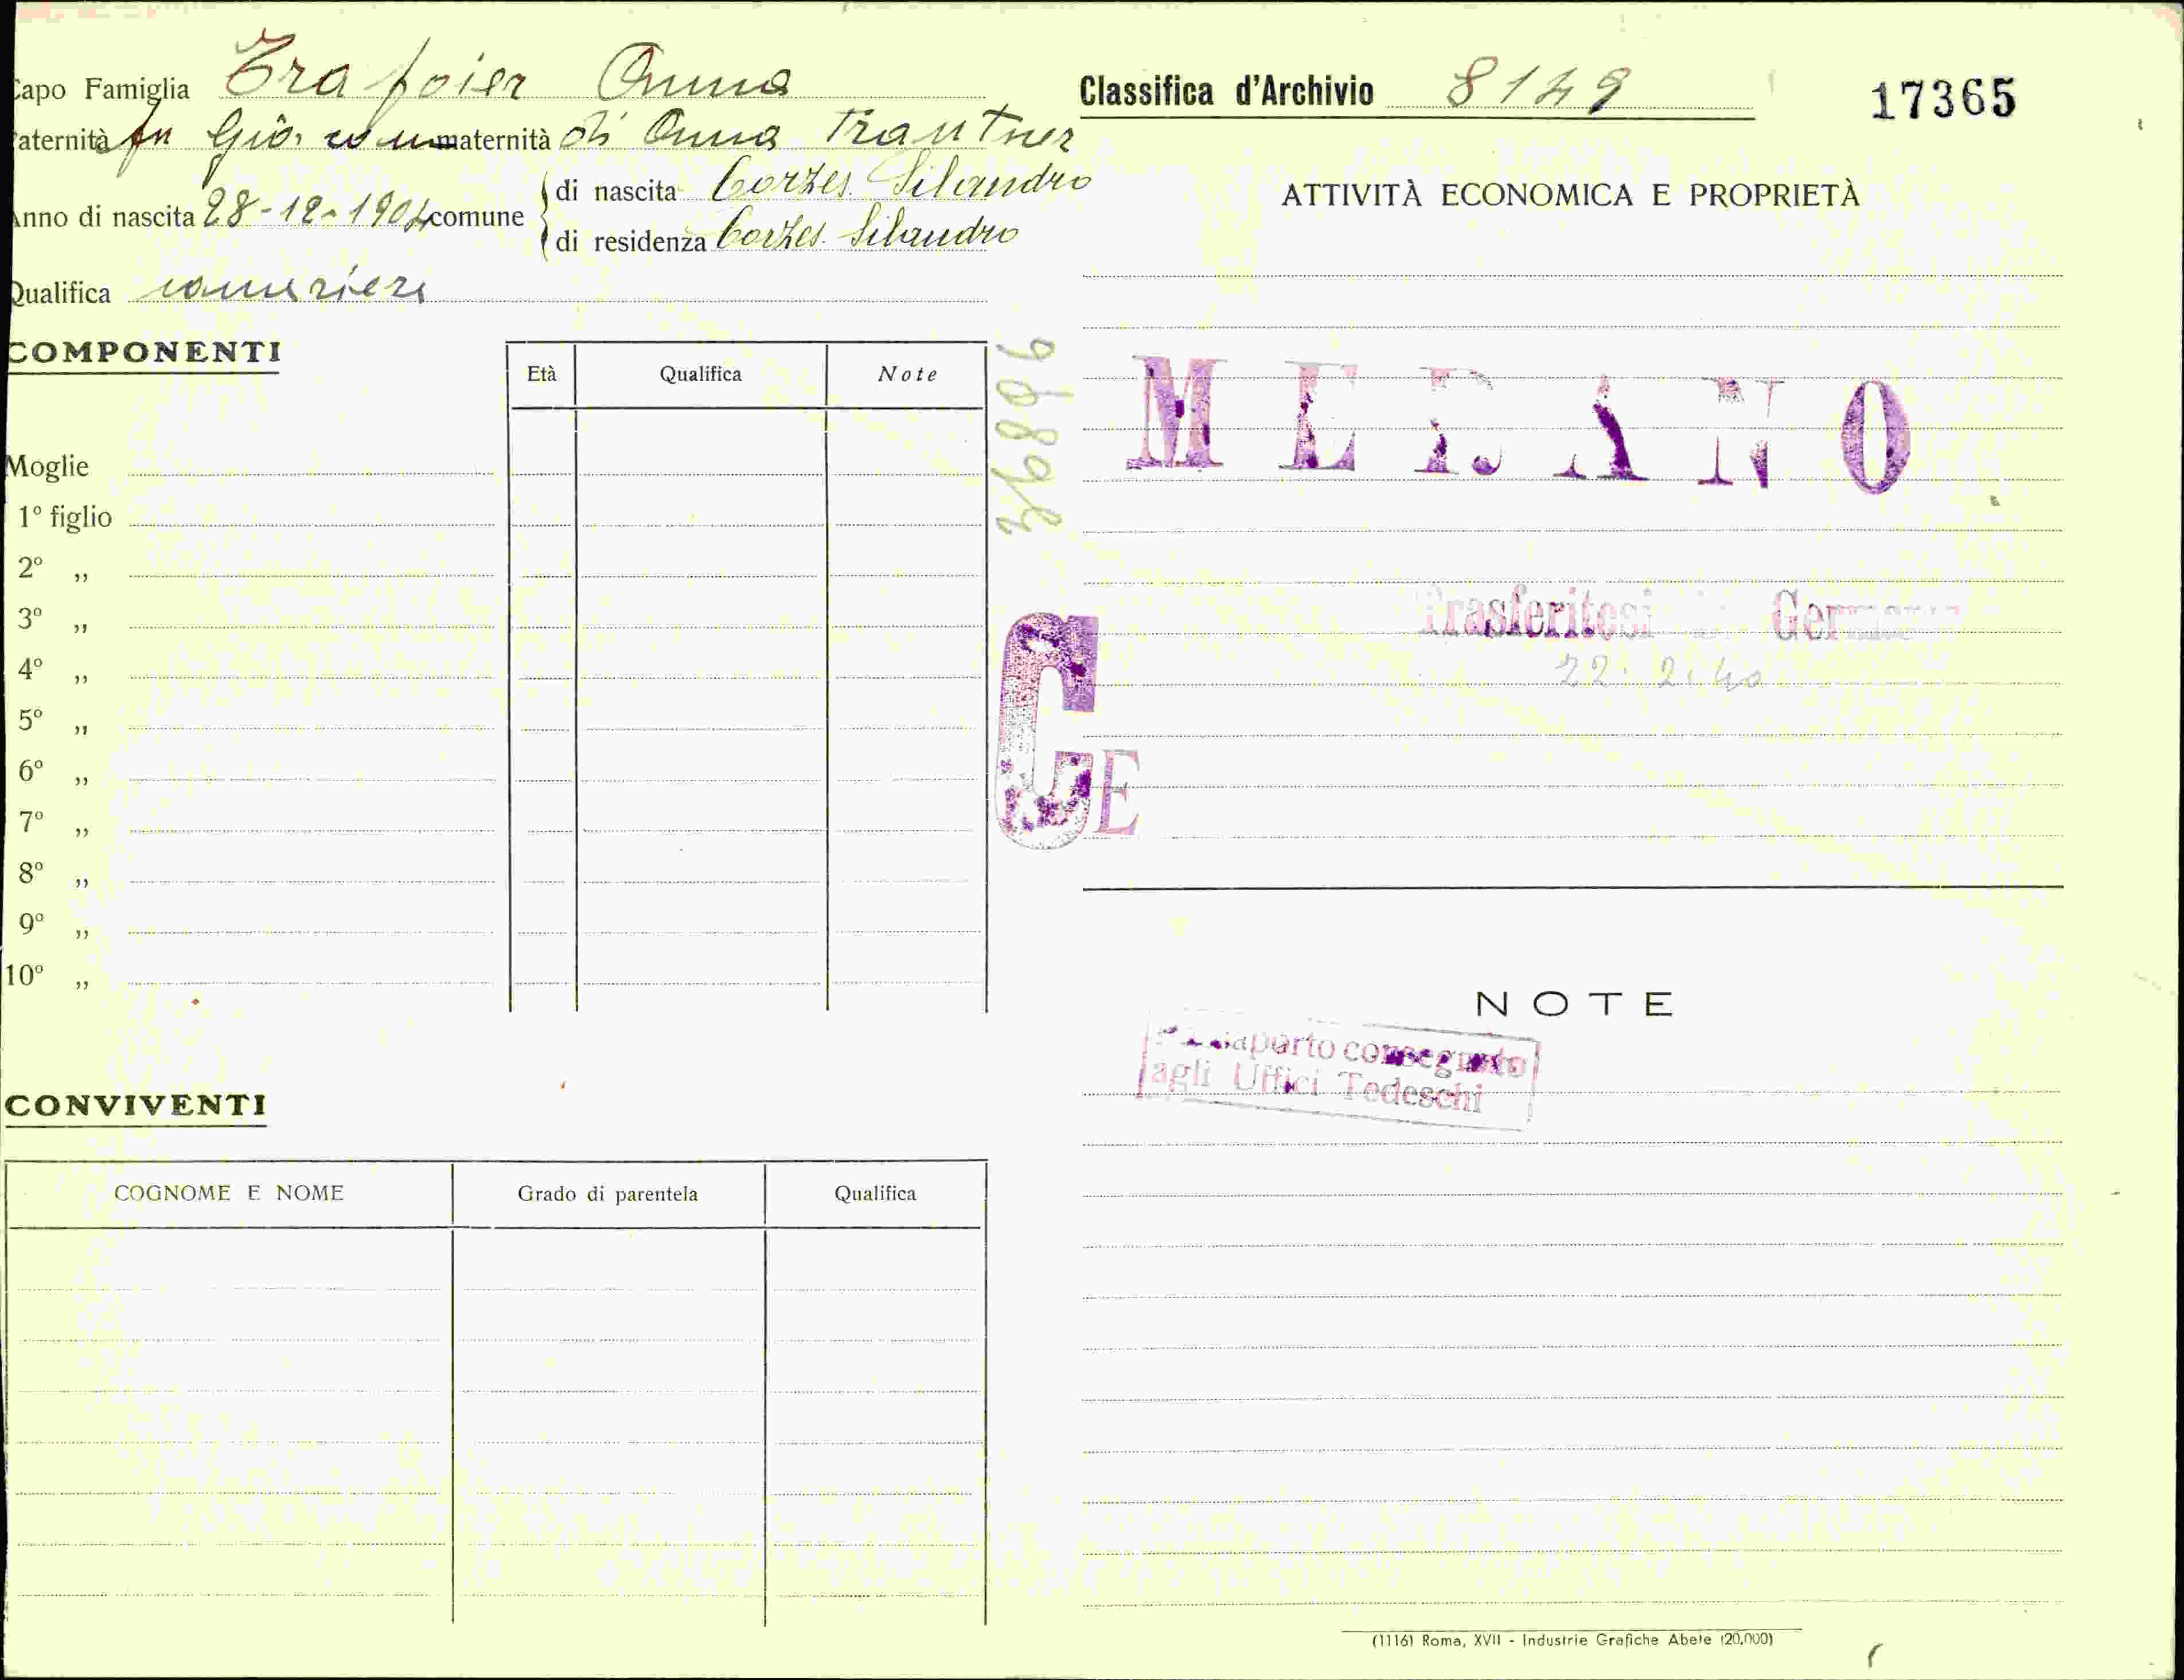 Capo Famiglia Trafoier Anna
Paternità fu Giò. maternità di Anna Trautner
Anno di nascita 28-12-1904 comune
di nascita Corzes Silandro
di residenza Corzes Silandro
Qualifica cameriera
COMPONENTI
Età Qualifica Note
Moglie
1º figlio
2º ,,
3º ,,
4º ,,
5º ,,
6º ,,
7º ,,
8º ,,
9º ,,
10º ,,
CONVIVENTI
COGNOME E NOME Grado di parentela Qualifica
36896
CE
Classifica d'Archivio 8149 17365
ATTIVITÀ ECONOMICA E PROPRIETÀ
MERANO
Trasferitosi Germania
22.2.40
NOTE
Passaporto consegnato
agli Uffici Tedeschi
(1116) Roma, XVII - Industrie Grafiche Abete (20.000)